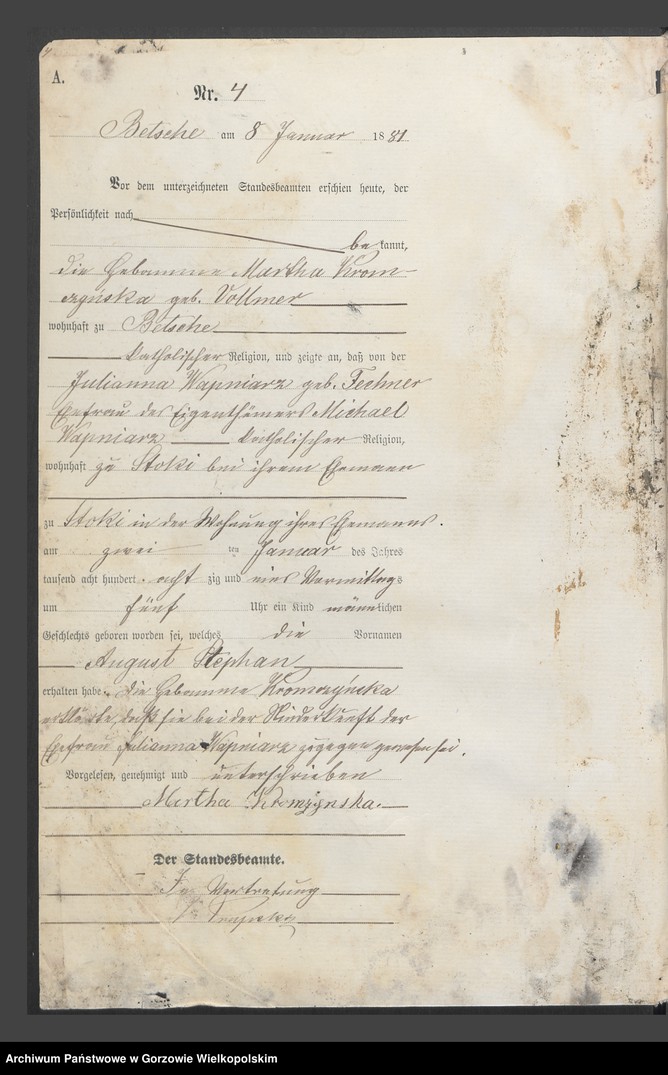 A.
Nr. 4
Betsche am 8 Januar 1881
Vor dem unterzeichneten Standesbeamten erschien heute, der
Persönlichkeit nach
bekannt,
die Hebamme Martha Krom-
czyńska geb. Vollmer
wohnhaft zu Betsche
katholischer Religion, und zeigte an, daß von der
Julianna Wapniarz geb. Fechner
Ehefrau des Eigenthümers Michael
Wapniarz katholischer Religion,
wohnhaft zu Stoki bei ihrem Ehemann
zu Stoki in der Wohnung ihres Ehemanns.
am zwei ten Januar des Jahres
tausend acht hundert acht zig und eins Vormittags
um fünf Uhr ein Kind männlichen
Geschlechts geboren worden sei, welches die Vornamen
August Stephan
erhalten habe. Die Hebamme Kromczyńska
erklärte, daß sie bei der Niederkunft der
Ehefrau Julianna Wapniarz zugegen gewesen sei.
Vorgelesen, genehmigt und unterschrieben
Martha Kromzynska.
Der Standesbeamte.
In Vertretung
Archiwum Państwowe w Gorzowie Wielkopolskim